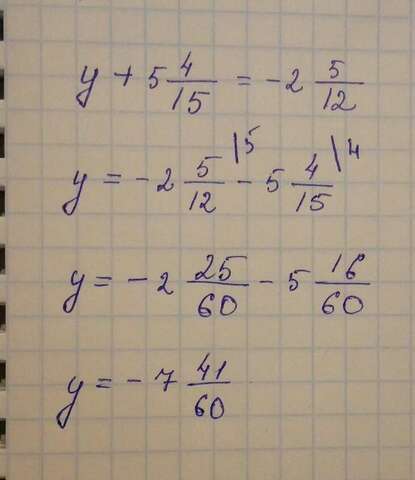 y + 5 4/15 = -2 5/12
y = -2 5/12 |5 - 5 4/15 |4
y = -2 25/60 - 5 16/60
y = -7 41/60